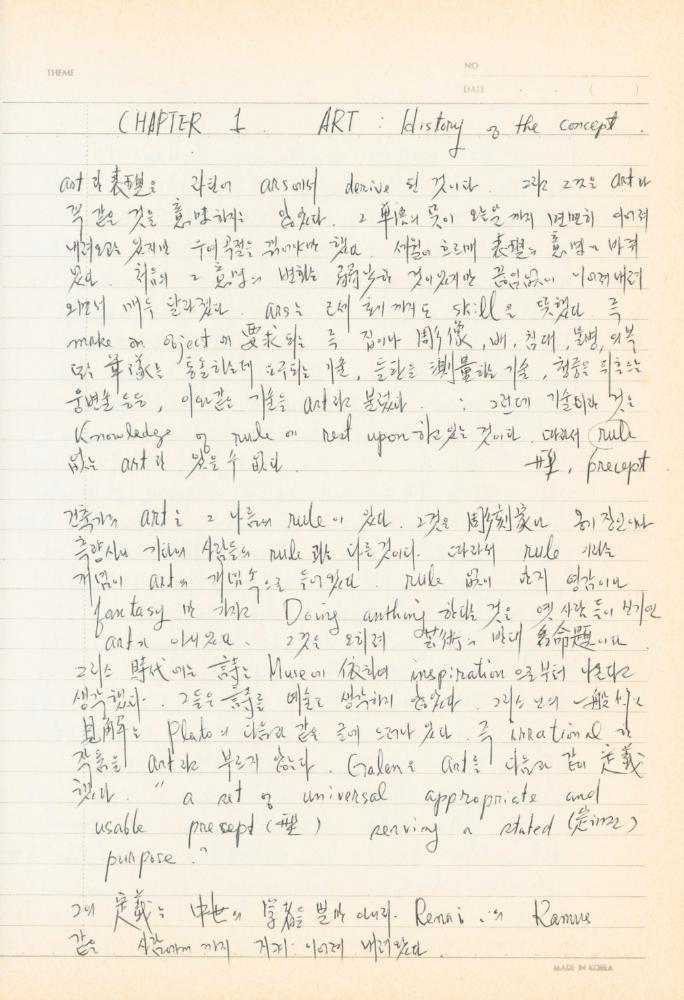 THEME
NO
DATE . . ( )
CHAPTER 1. ART : History of the concept.
art란 表現은 라틴어 ars에서 derive 된 것이다. 그러나 그것은 art와
꼭 같은 것을 意味하지는 않았다. 그 単語의 뜻이 오늘날까지 면면히 이어져
내려오고는 있지만 우여곡절을 겪어야만 했다. 세월이 흐르매 表現의 意味가 바뀌
었다. 처음의 그 意味의 변화는 것이었지만 끊임없이 이어져 내려
오면서 매우 달라졌다. ars는 근세 초기까지도 skill을 뜻했다. 즉
make an object에 要求되는 즉 집이나 彫像, 배, 침대, 물병, 의복
또는 軍隊를 통솔하는데 요구되는 기술, 들판을 測量하는 기술, 청중을
웅변술 등등, 이와같은 기술을 art라고 불렀다. : 그런데 기술이라는 것은
Knowledge of rule에 rest upon하고 있는 것이다. 따라서 rule
없는 art란 있을 수 없다. 型, precept
건축가의 art는 그 나름의 rule이 있다. 그것은 彫刻家나 옹기장인이나
측량사나 기타의 사람들의 rule과는 다른것이다. 따라서 rule 이라는
개념이 art의 개념속으로 들어있다. rule 없이 단지 영감이나
fantasy만 가지고 Doing anthing 한다는 것은 옛 사람들이 보기엔
art가 아니었다. 그것은 오히려 芸術의 반대 命題이다.
그리스 時代에는 詩는 Muse에 依하여 inspiration으로부터 나온다고
생각했다. 그들은 詩를 예술로 생각하지 않았다. 그리스인의 一般的인
見解는 Plato의 다음과 같은 글에 드러나 있다. 즉 irrational한
작품을 art라고 부르지 않는다. Galen은 art를 다음과 같이 定義
했다. " a set of universal appropriate and
usable presept (型) serving a stated (定해진)
purpose."
그의 定義는 中世의 学者들 뿐만 아니라. Renai.의 Ramus
같은 사람에게까지 이어져 내려왔다.
MADE IN KOREA